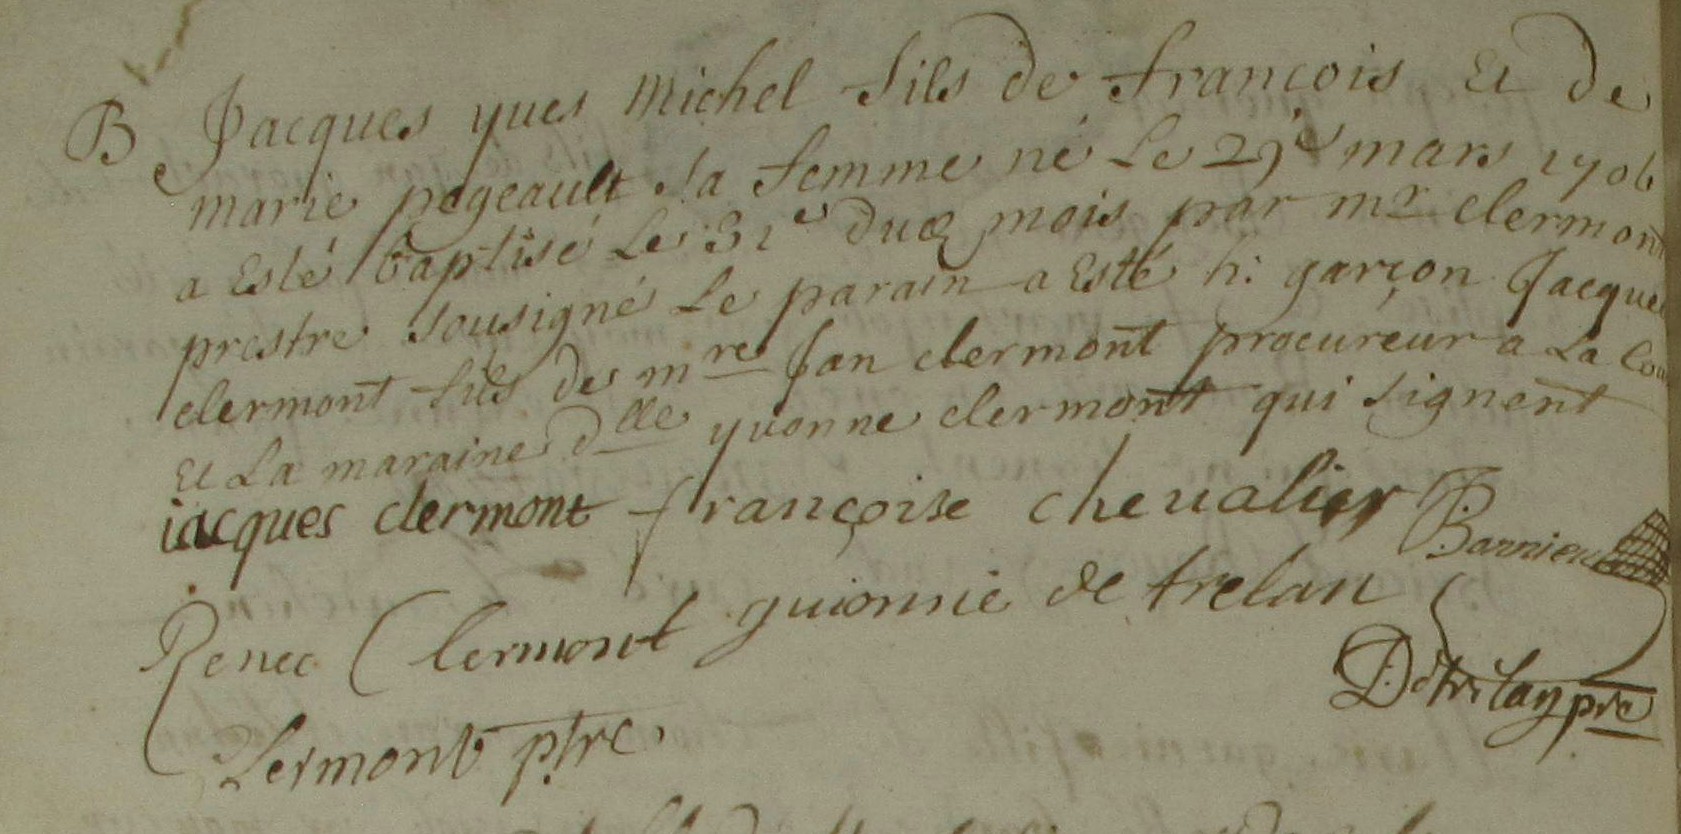 B Jacques yves Michel fils de françois Et de
marie pageault sa femme né Le 29e mars 1706
a Esté baptisé Le 31e dud mois par mr clermont
prestre sousigné Le parain a Esté h. garçon Jacques
clermont fils de mre Jan clermont procureur a La Cour
Et La maraine dlle yvonne clermont qui signent
iacques clermont françoise chevalier Barnieu
Renee Clermont guionne de trelan
Detrelan pre
Clermont ptre.